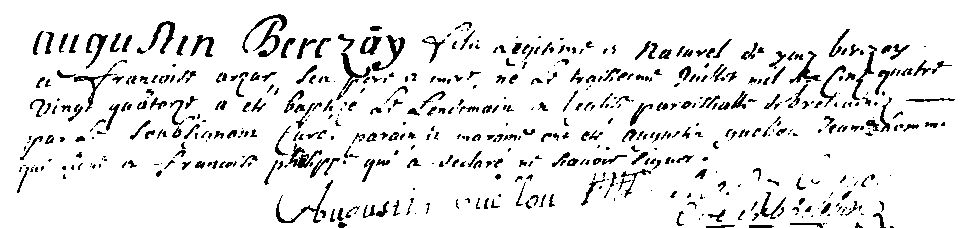 augustin Berezay fils legitime et naturel de yves berezay
et francoise arzur, ses pere et mere, né le traisieme Juillet mil sept cent quatre
vingt quatorze, a été baptizé le lendemain en leglise paroissialle de
par le soubsignant Curé. parain et maraine ont été augustin quellou Jeune homme
qui signe et francoise philippe qui a declaré ne scavoir signer.
Augustin quellou